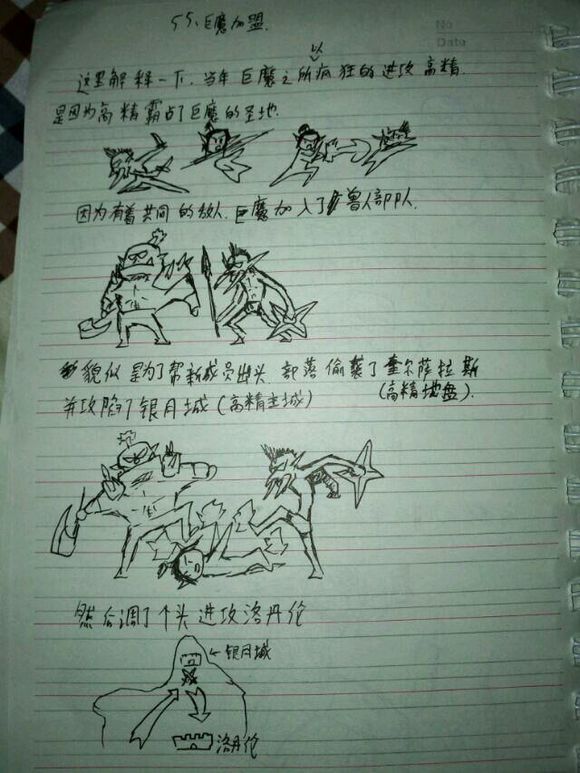 55、巨魔加盟.
No
Date
这里解释一下，当年巨魔之所以疯狂的进攻高精.
是因为高精霸占了巨魔的圣地.
因为有着共同的敌人.巨魔加入了兽人部队.
貌似是为了帮新成员出头.部落偷袭了奎尔萨拉斯
并攻陷了银月城(高精主城)
(高精地盘).
然后调了个头进攻洛丹伦
←银月城
洛丹伦